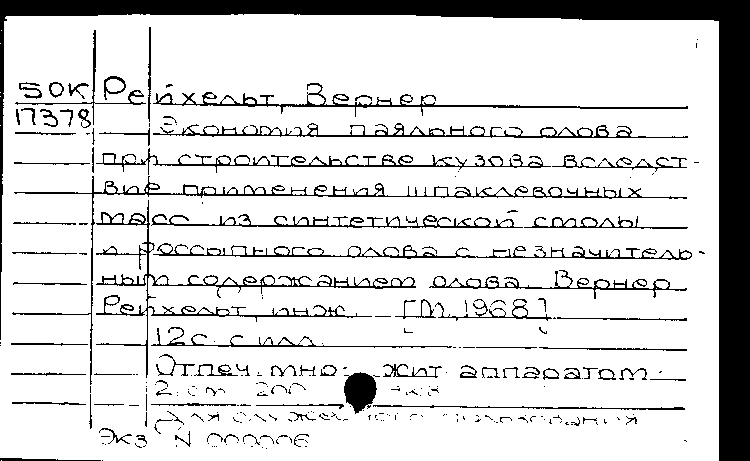 50К Рейхельт, Вернер
П7378
Экономия паяльного олова
при строительстве кузова вследст-
вие применения шпаклевочных
масс из синтетической смолы
и россыпного олова с незначитель-
ным содержанием олова. Вернер
Рейхельт, инж. [М, 1968]
12с. с илл.
Отпеч. мно- жит. аппаратом.
2 см 200 экз
Для служебного пользования
Экз N 000006